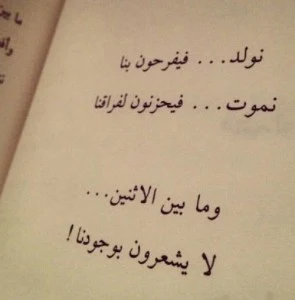 نولد... فيفرحون بنا
نموت... فيحزنون لفراقنا
وما بين الاثنين...
لا يشعرون بوجودنا!